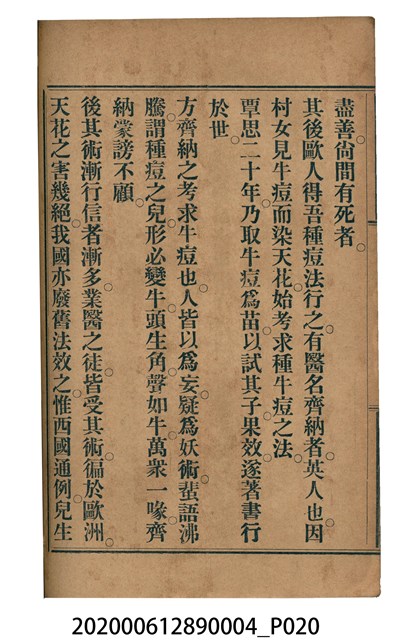 盡善尚間有死者
其後歐人得吾種痘法行之有醫名齊納者英人也因
村女見牛痘而染天花始考求種牛痘之法
覃思二十年乃取牛痘爲苗以試其子果效遂著書行
於世
方齊納之考求牛痘也人皆以爲妄疑爲妖術蜚語沸
騰謂種痘之兒形必變牛頭生角聲如牛萬衆一喙齊
納蒙謗不顧
後其術漸行信者漸多業醫之徒皆受其術徧於歐洲
天花之害幾絕我國亦廢舊法效之惟西國通例兒生
202000612890004_P020